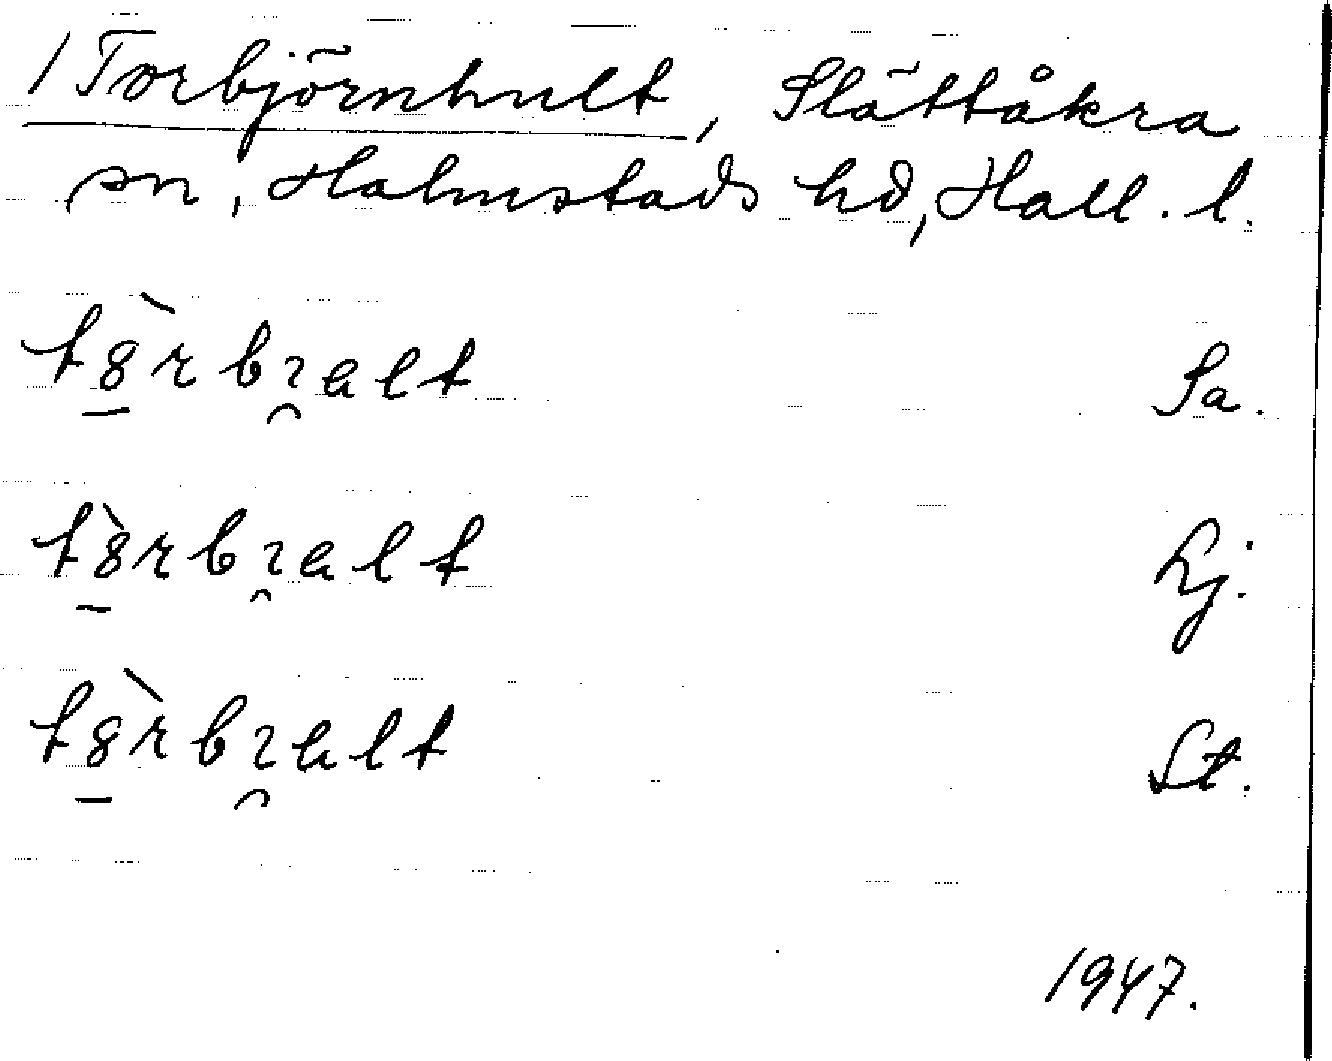 / Torbjörnhult, Slättåkra
sn, Halmstads hd, Hall. l.
tȣ̱̀rbɿ̯alt Sa.
tȣ̱̀rbɿ̯alt Lj.
tȣ̱̀rbɿ̯alt St.
1947.